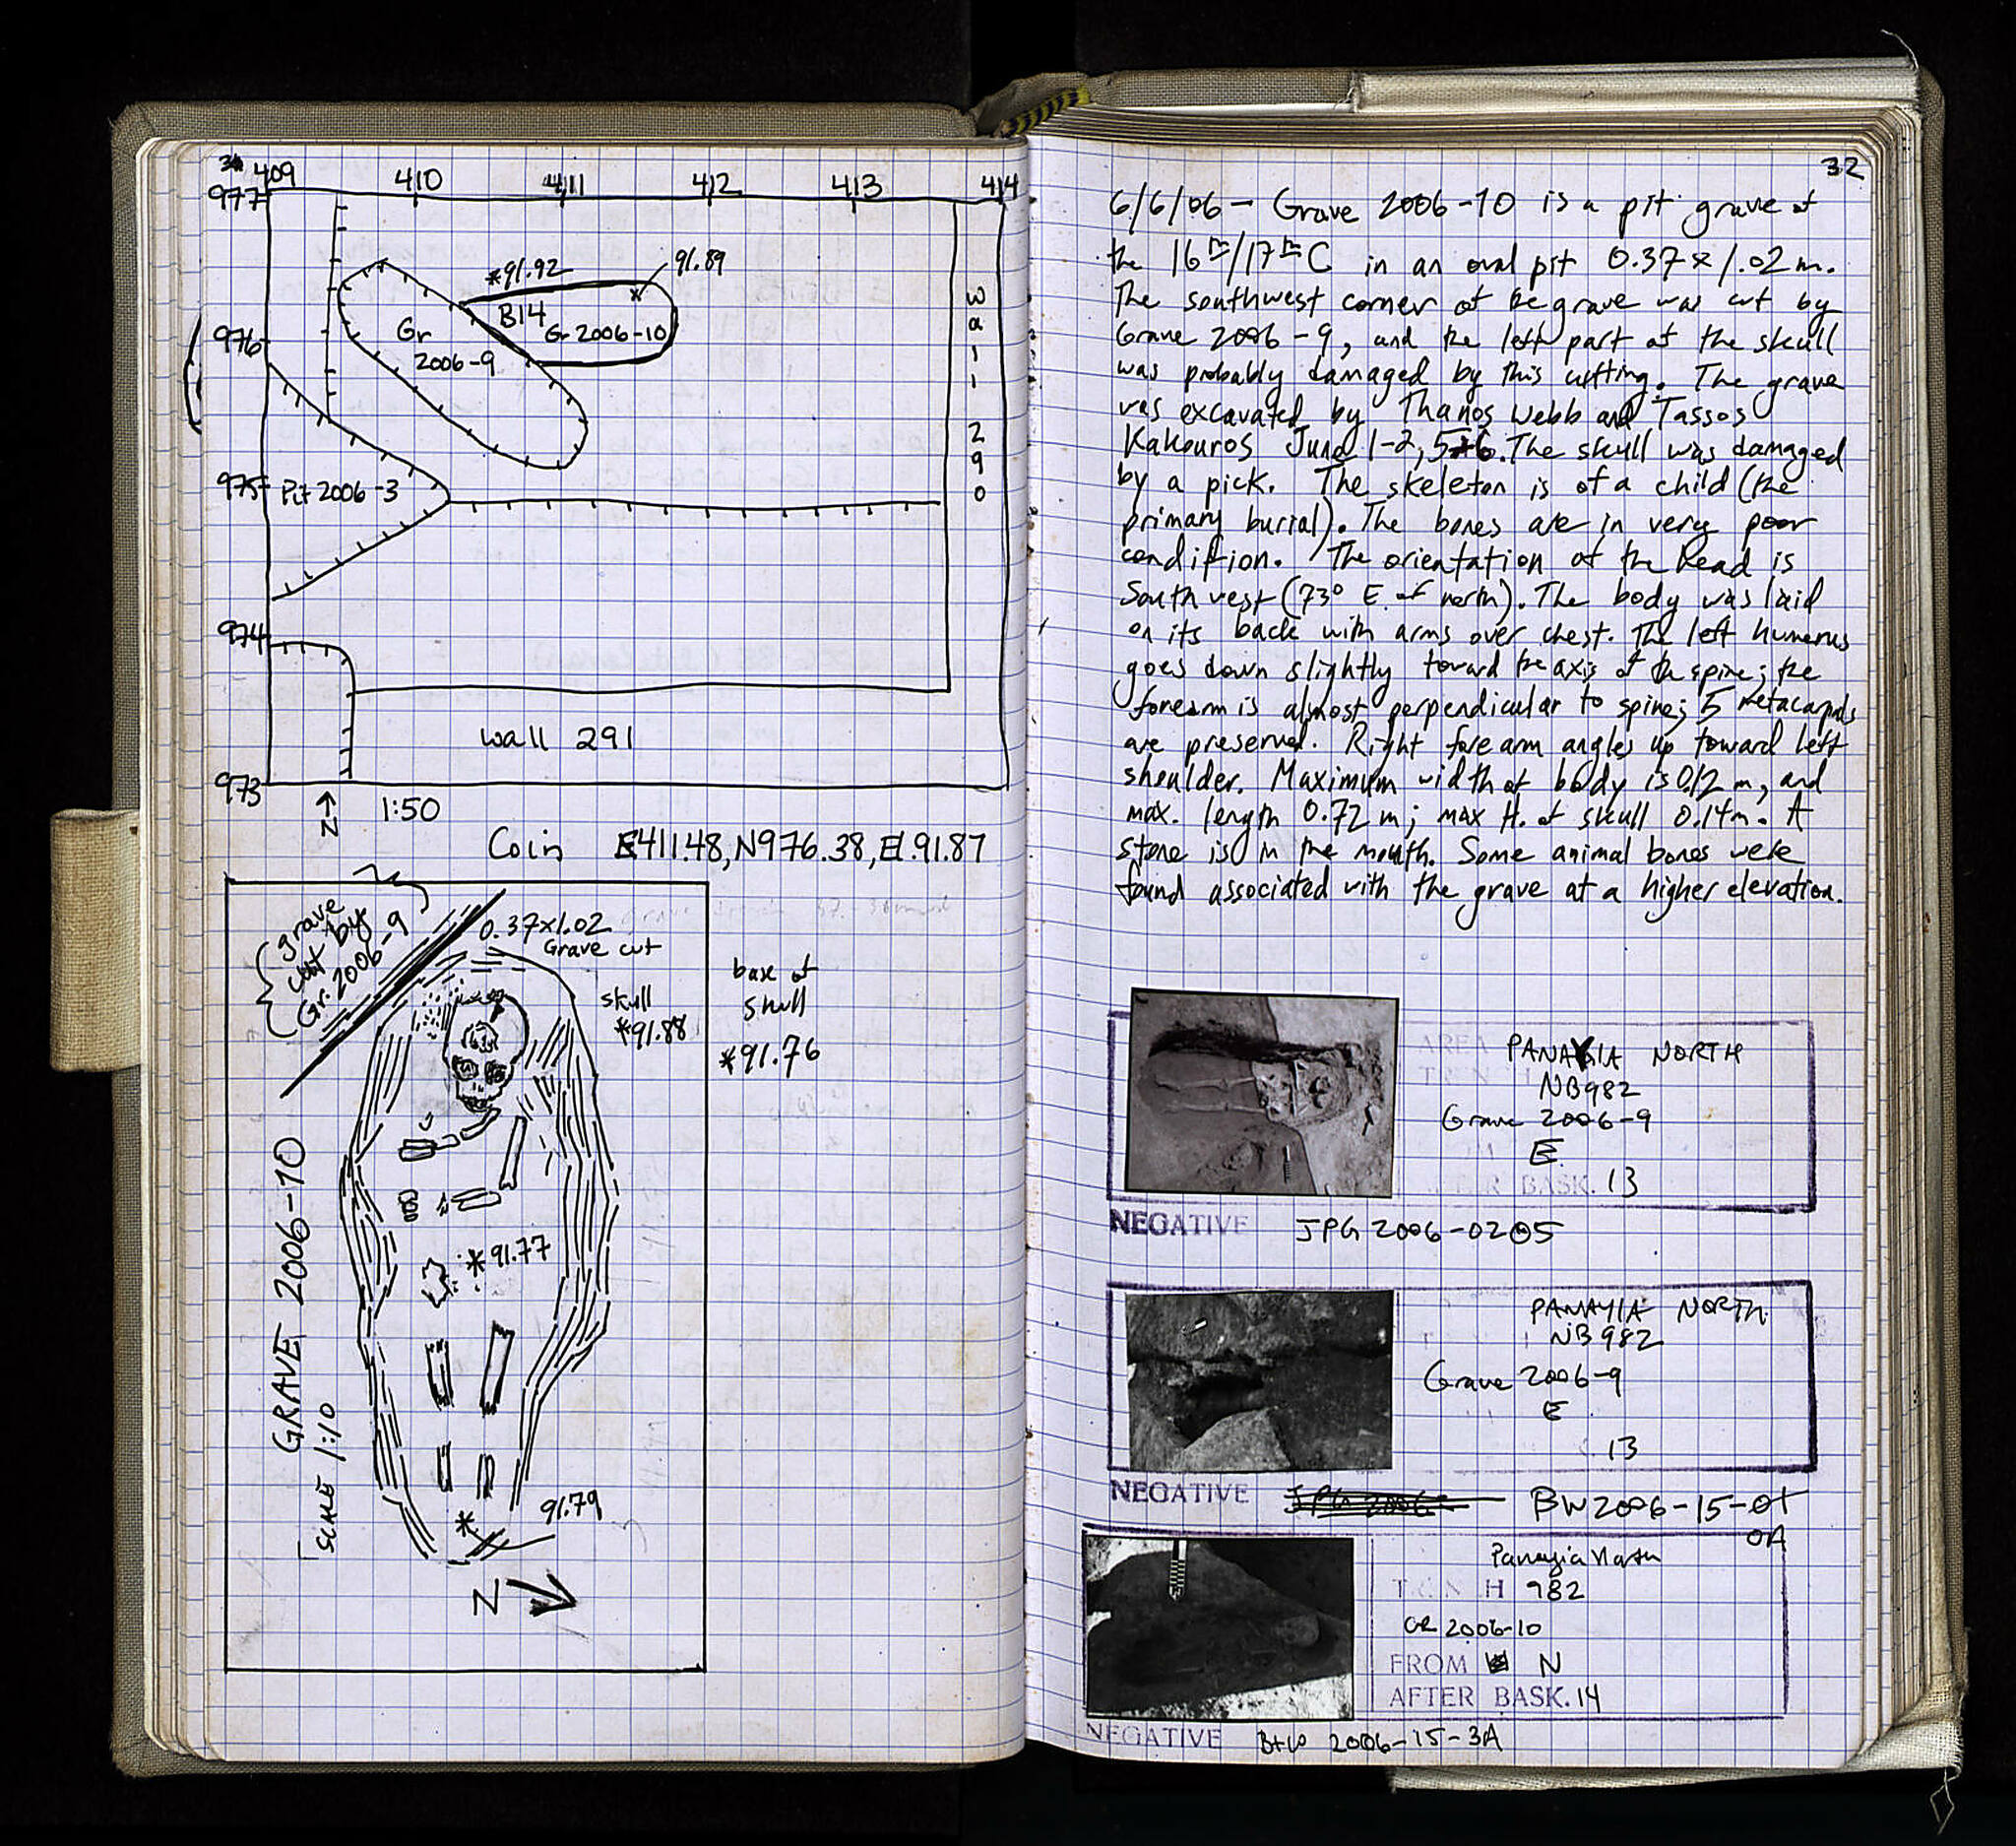 409 410 411 412 413 414
977
*91.92 91.89
B14
Gr 2006-10
Gr
2006-9
976
Wall 290
975
Pit 2006-3
974
wall 291
973
N
1:50
Coin E411.48, N976.38, El.91.87
grave
cut by
Gr. 2006-9
0.37x1.02
Grave cut
skull
*91.88
base of
skull
*91.76
*91.77
GRAVE 2006-10
SCALE 1:10
91.79
*
N
32
6/6/06 - Grave 2006-10 is a pit grave of
the 16th/17th C in an oval pit 0.37 x 1.02 m.
The southwest corner of the grave was cut by
Grave 2006-9, and the left part of the skull
was probably damaged by this cutting. The grave
was excavated by Thanos Webb and Tassos
Kakouros June 1-2, 5+6. The skull was damaged
by a pick. The skeleton is of a child (the
primary burial). The bones are in very poor
condition. The orientation of the head is
Southwest (73° E. of north). The body was laid
on its back with arms over chest. The left humerus
goes down slightly toward the axis of the spine; the
forearm is almost perpendicular to spine; 5 metacarpals
are preserved. Right forearm angles up toward left
shoulder. Maximum width of body is 0.12 m, and
max. length 0.72 m; max H. of skull 0.14m. A
stone is in the mouth. Some animal bones were
found associated with the grave at a higher elevation.
AREA PANAYIA NORTH
TRENCH NB982
Grave 2006-9
E
AFTER BASK. 13
NEGATIVE JPG 2006-0205
PANAYIA NORTH
NB982
Grave 2006-9
E
13
NEGATIVE JPG 2006 BW 2006-15-01
0A
Panayia North
TRENCH 982
GR 2006-10
FROM N
AFTER BASK. 14
NEGATIVE B+W 2006-15-3A